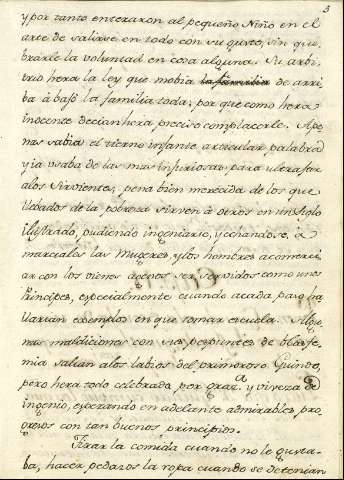 3
y por tanto enteraron al pequeño Niño en el
arte de salirse en todo con su gusto, sin que
brarle la voluntad en cosa alguna. Su arbi
trio hera la ley que mobia de arri
ba à bajo la familia toda, por que como hera
inocente decian hera preciso complacerle. Ape
nas sabia el tierno infante articular palabras
y ia usaba de las mas injuriosas para ultrajar
alos Sirvientes, pena bien merecida de los que
llebados de la pobreza sirven à otros en un siglo
ilustrado, pudiendo ingeniarse, y echandose à
marciales las Mugeres, y los hombres a comerci
ar con los vienes agenos ser servidos como unos
Principes, especialmente cuando acada paso ha
llarian exemplos en que tomar escuela. Algu
nas maldiciones con sus pespuntes de blasfe
mia salian alos labios del primoroso Guindo,
pero hera todo celebrado, por graca. y viveza de
ingenio, esperando en adelante admirables pro
gresos con tan buenos principios.
Tirar la comida cuando no le gusta-
ba, hacer pedazos la ropa cuando se detenian